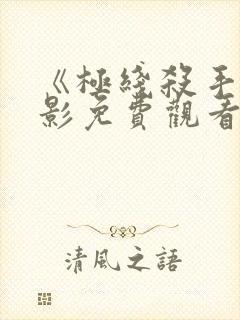 《極綫殺手
影免費觀看
清風之語